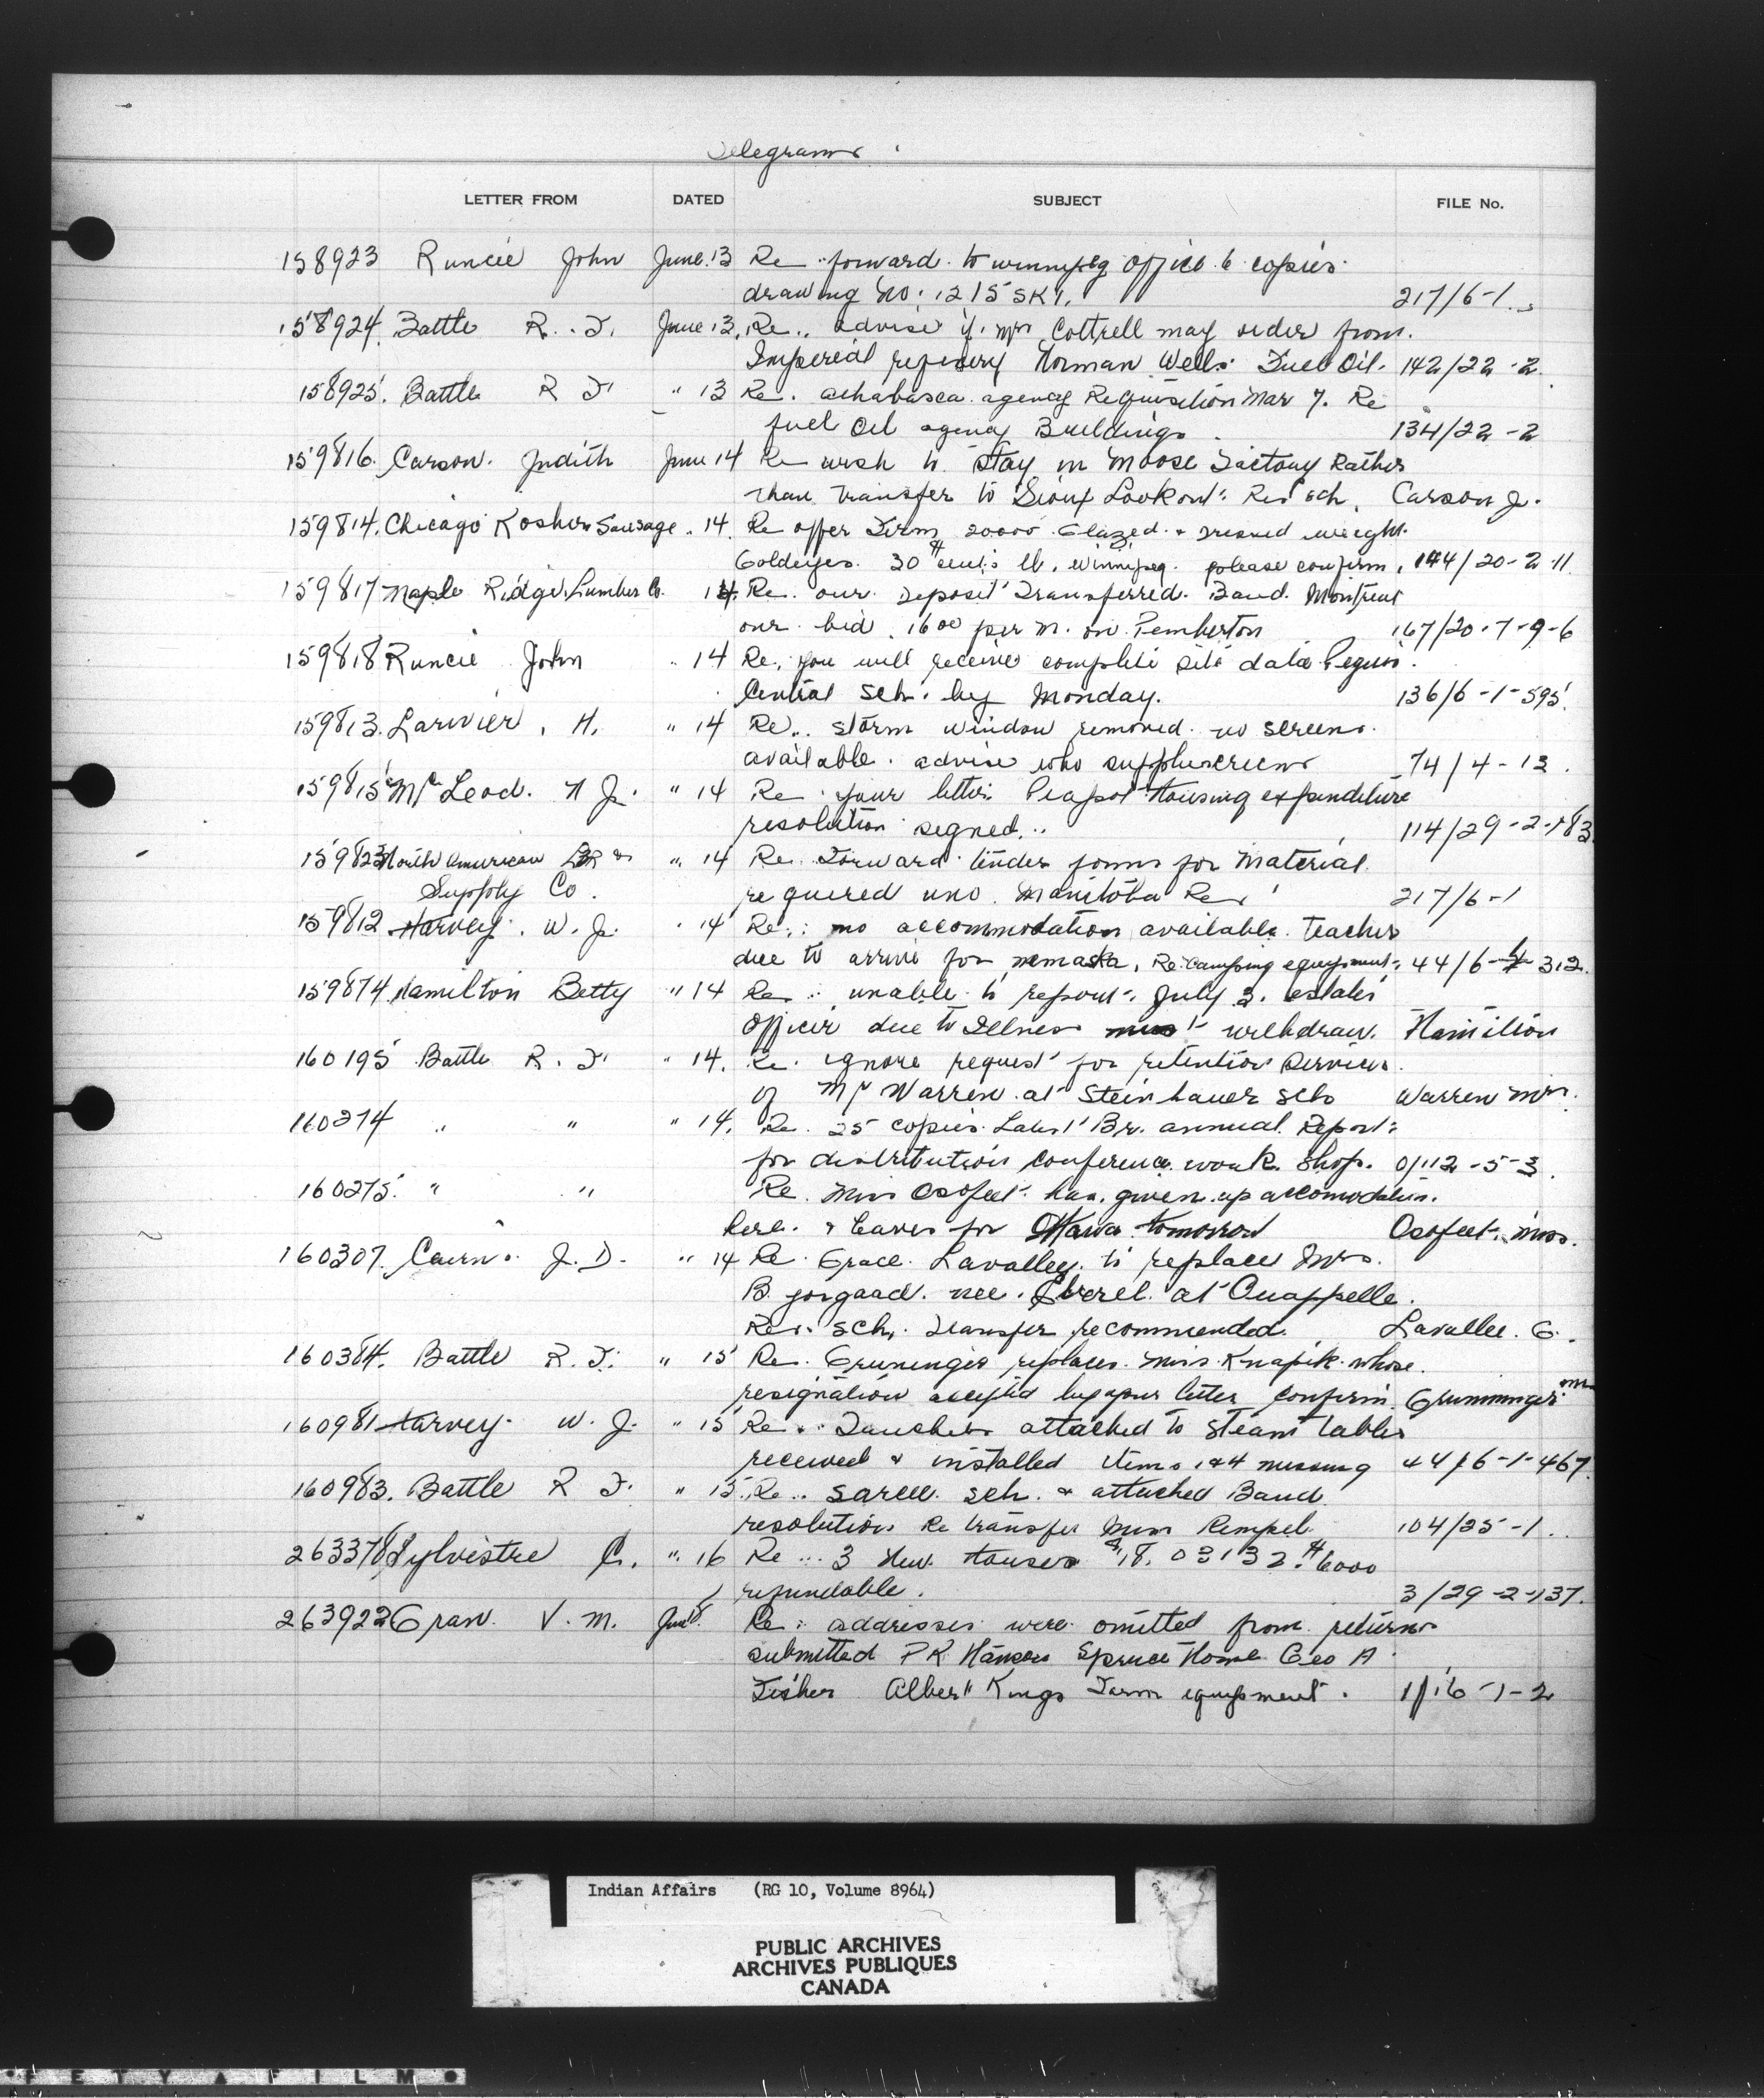 Telegrams
LETTER FROM DATED SUBJECT FILE No.
158923 Runcie John June 13 Re forward to winnipeg office 6 copies
drawing no: 1215 SK1. 217/6-1
158924 Battle R. F. June 13, Re.. advise if Mr Cottrell may order from
Imperial refinery Norman Wells Fuel Oil. 142/22-2.
158925. Battle R F " 13 Re. athabasca agency Requisition Mar 7. Re
fuel Oil agency Buildings. 134/22-2
159816. Carson. Judith June 14 Re wish to stay in Moose Factory Rather
than transfer to Sioux Lookout Res sch. Carson J.
159814. Chicago Kosher Sausage " 14. Re offer Firm 20000 Glazed & dressed weight
Goldeyes. 30 cents lb. winnipeg. please confirm. 144/20-2-11.
159817 Maple Ridge Lumber Co. 14. Re. our deposit Transferred. Band Montreal
our bid 16 00 per M. on Pemberton 167/20-7-9-6
159818 Runcie John " 14 Re. you will receive complete site data Peguis
Central Sch. by Monday. 136/6-1-595.
159813. Larivier, H. " 14 Re.. storm window removed no screens
available. advise who supplies screens 74/4-13.
159815 McLeod. H J. " 14 Re your letter Peapot Housing expenditure
resolution signed... 114/29-2-183
159823 North American LBR &
Supply Co. " 14 Re. Forward tender forms for Material
required Manitoba Res 217/6-1
159812 Harvey. W. J. " 14 Re.: no accommodation available. Teacher
due to arrive for nemaska. Re camping equipment. 44/6-1-312.
159874 Hamilton Betty " 14 Re. unable to report July 3. estates
Officer due to Illness must withdraw. Hamilton
160195 Battle R. F " 14. Re. ignore request for retention services
of Mr Warren at Steinhauer sch Warren Mrs.
160274 " " " 14. Re. 25 copies Latest Br. annual Report
for distribution conference work shop. 0/112-5-3.
160275. " " Re. Miss Osofeet has given up accomodation.
here & leaves for Ottawa tomorrow Osofeet, Miss.
160307. Cairns. J. D. " 14 Re. Grace Lavalley to replace Mrs.
B. nee at Quappelle.
Res. sch. Transfer recommended. Lavallee. G.
160384. Battle R. F. " 15 Re. Gruninger replaces Miss Knapik whose
resignation accepted by your letter confirm. Grunninger
160981 Harvey. W. J. " 15 Re.. attached to steam tables
received & installed items 1 & 4 missing 44/6-1-467.
160983. Battle R F. " 15. Re.. sarcee sch. & attached Band
resolution Re transfer Miss Rempel. 104/25-1.
263378 Sylvestre C. " 16 Re... 3 New Houses $18,031 32. $6000
refundable. 3/29-2-137.
263922 Gran. V. M. June 15. Re: addresses were omitted from returns
submitted P K Hansen Spruce Home Geo A
Fisher Albert Kings Farm equipment. 1/16-1-2
Indian Affairs (RG 10, Volume 8964)
PUBLIC ARCHIVES
ARCHIVES PUBLIQUES
CANADA
FETY FILM